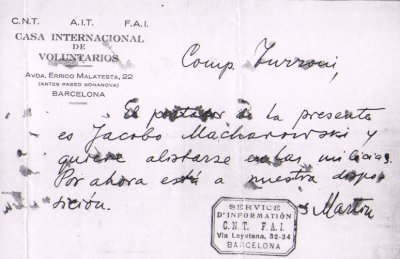 C.N.T. A.I.T. F.A.I.
CASA INTERNACIONAL
DE
VOLUNTARIOS
AVDA. ERRICO MALATESTA, 22
(ANTES PASEO BONANOVA)
BARCELONA
Comp.
El portador de la presente
es Jacobo y
quiere alistarse en las milicias.
Por ahora está a nuestra dispo
sición.
Martín
SERVICE
D'INFORMATION
C.N.T. F.A.I.
Via Layetana, 32-34
BARCELONA